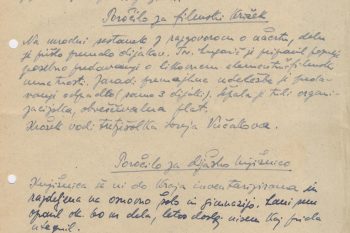 Poročilo za filmski krožek
Na uvodni sestanek z razgovorom o načrtu, dela
je prišlo premalo dijakov. Tov. je pripravil
posebno predavanje o likovnem elementu filmske
umetnosti. Zaradi premajhne udeležbe je preda-
vanje odpadlo (samo 3 dijaki), šepala je tudi organi-
zacijska, obveščevalna plat.
Krožek vodi tretješolka Sonja Vučakova.
Poročilo za dijaško knjižnico
Knjižnica še ni do kraja inventarizirana in
razdeljena na osnovno šolo in gimnazijo. Lani sem
opravil ok. 60 ur dela, letos doslej nisem kaj prida
utegnil.